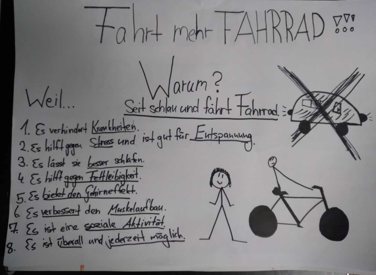 Fahrt mehr FAHRRAD!!!
Warum?
Seit schlau und fährt Fahrrad.
Weil...
1. Es verhindert Krankheiten.
2. Es hilft gegen Stress und ist gut für Entspannung.
3. Es lässt sie besser schlafen.
4. Es hilft gegen Fettleibigkeit.
5. Es bietet den
6. Es verbessert den Muskelaufbau.
7. Es ist eine soziale Aktivität.
8. Es ist überall und jederzeit möglich.